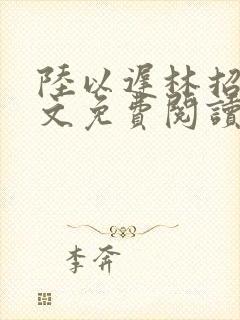 陸以遲林招
文免費閱讀
李奔